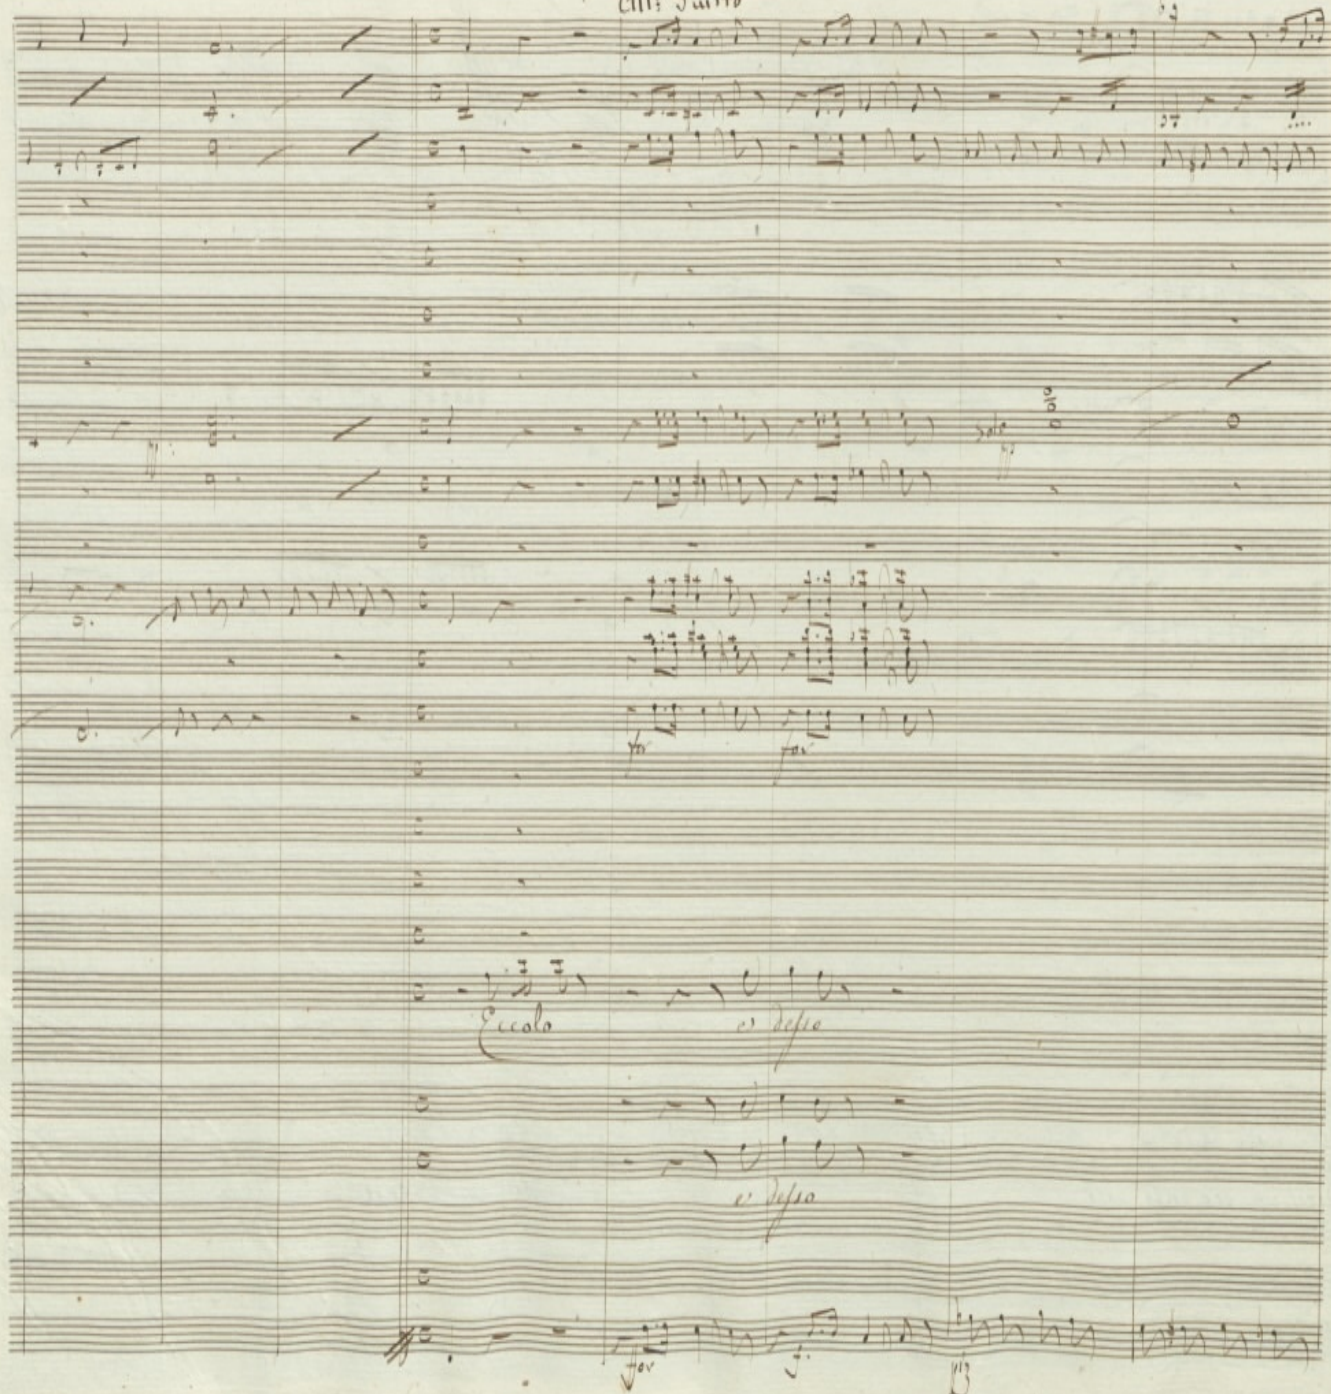 Solo
for for
Eccolo e desso
e desso
for f.